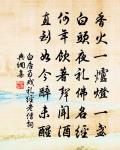 香火一爐燈一盞
白頭夜禮佛名經
何年飲著聲聞酒
直到如今醉未醒
白居易戏礼經老僧